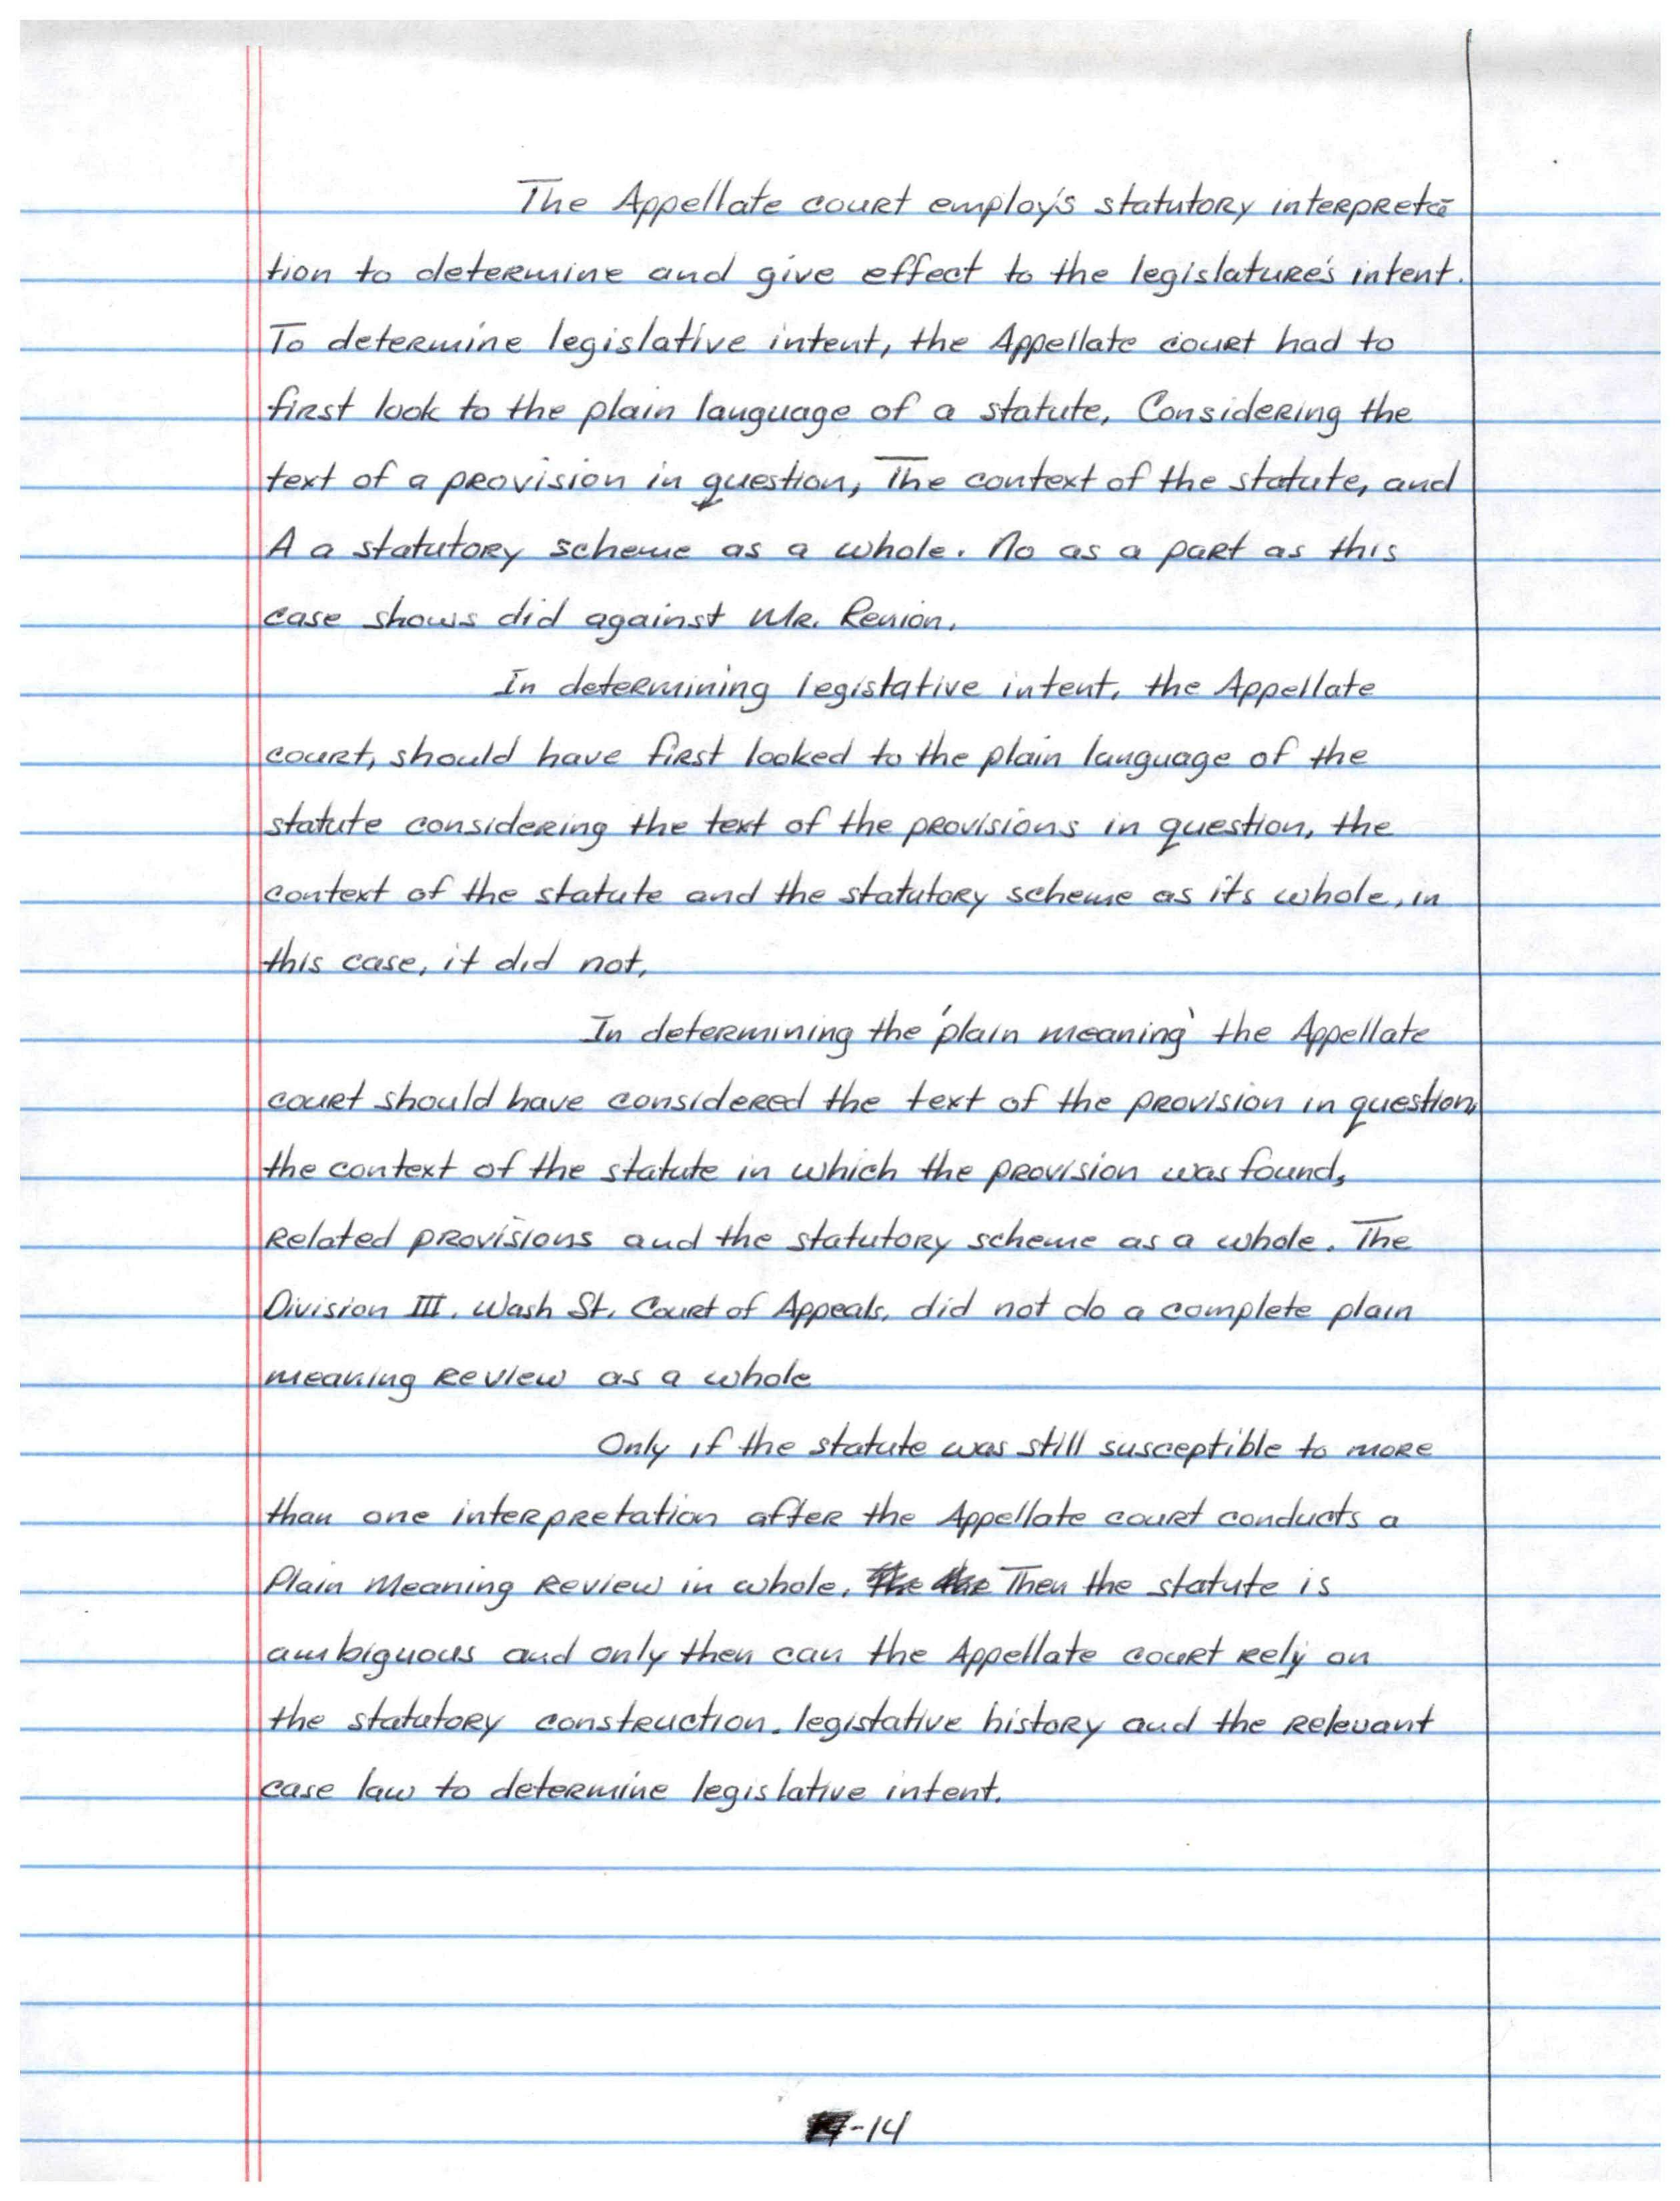 The Appellate court employ's statutory interpreta
tion to determine and give effect to the legislature's intent.
To determine legislative intent, the Appellate court had to
first look to the plain language of a statute, Considering the
text of a provision in question, The context of the statute, and
A a statutory scheme as a whole. No as a part as this
case shows did against Mr. Renion.
In determining legistative intent, the Appellate
court, should have first looked to the plain language of the
statute considering the text of the provisions in question, the
context of the statute and the statutory scheme as its whole, in
this case, it did not,
In determining the 'plain meaning' the Appellate
court should have considered the text of the provision in question,
the context of the statute in which the provision was found,
related provisions and the statutory scheme as a whole. The
Division III. Wash St. Court of Appeals, did not do a complete plain
meaning review as a whole
Only if the statute was still susceptible to more
than one interpretation after the Appellate court conducts a
Plain Meaning Review in whole, Then the statute is
ambiguous and only then can the Appellate court rely on
the statutory construction. legistative history and the relevant
case law to determine legislative intent.
-14